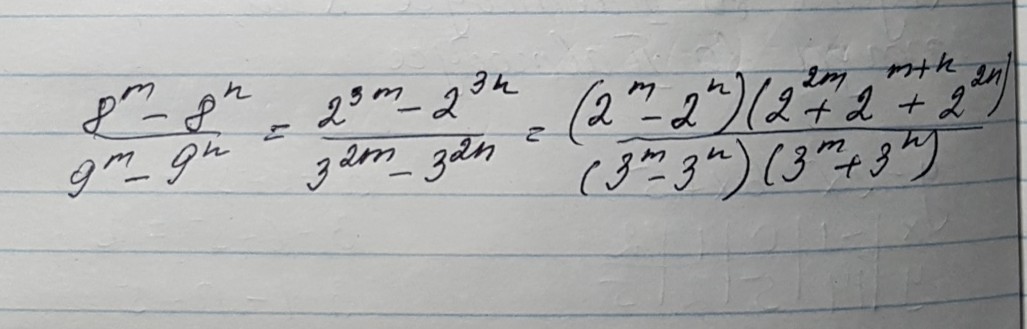 \frac{8^m - 8^n}{9^m - 9^n} = \frac{2^{3m} - 2^{3n}}{3^{2m} - 3^{2n}} = \frac{(2^m - 2^n)(2^{2m} + 2^{m+n} + 2^{2n})}{(3^m - 3^n)(3^m + 3^n)}